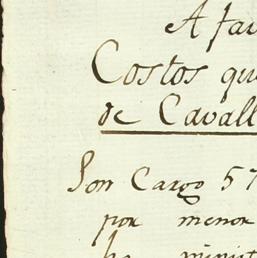 A fav
Costos que
de Cavall
Son Cargo 57
por menor
ha minist